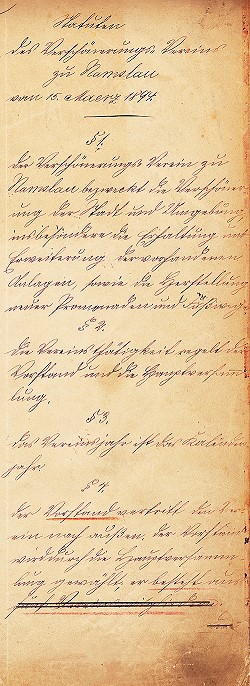 Statuten
des Verschönerungs-Vereins
zu Namslau
vom 15. Maerz 1894.
§ 1.
Der Verschönerungs-Verein zu
Namslau bezweckt die Verschöner-
ung der Stadt und Umgebung
insbesondere die Erhaltung und
Erweiterung der vorhandenen
Anlagen, sowie die Herstellung
neuer Promenaden und Fußwege.
§ 2.
Die Vereinsthätigkeit regelt der
Vorstand und die Hauptversamm-
lung.
§ 3.
Das Vereinsjahr ist das Kalender-
jahr.
§ 4.
Der Vorstand vertritt den Ver-
ein nach außen. Der Vorstand
wird durch die Hauptversamm-
lung gewählt, er besteht aus